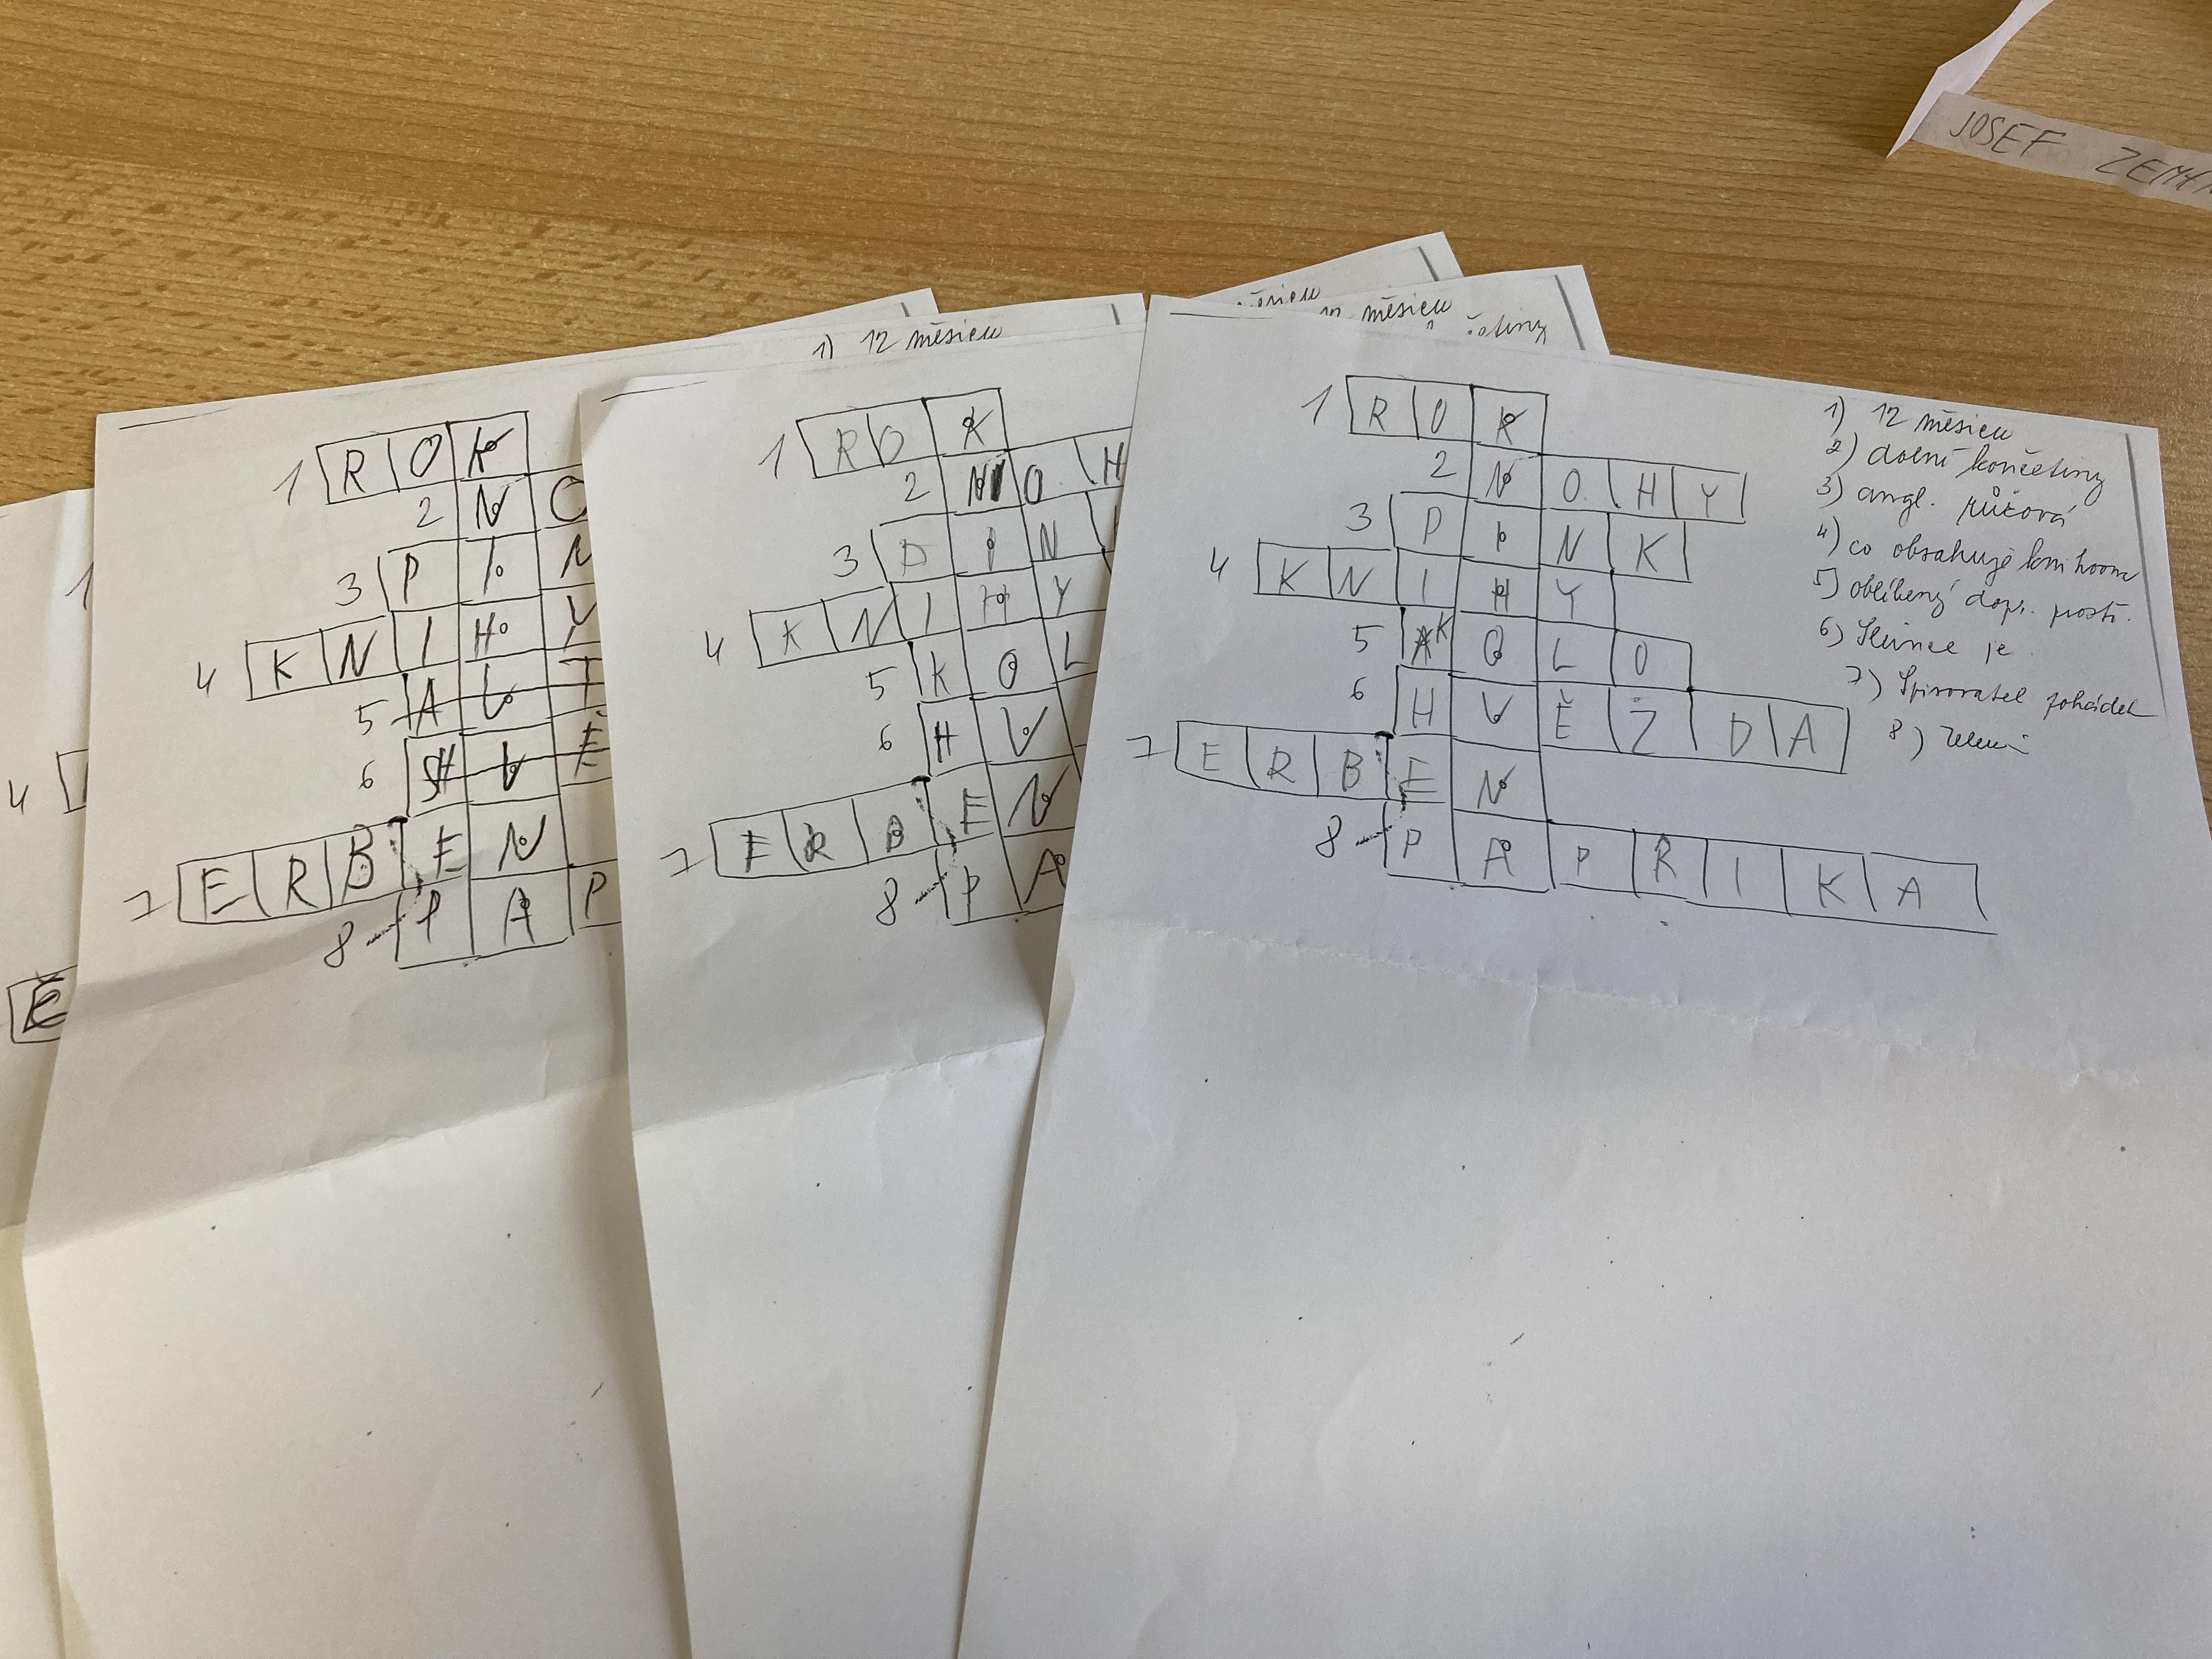 JOSEF
1) 12 měsíců
12 měsíců
1 R O K
2 N O
3 P I N
4 K N I H Y
5 A U T
6 H V Ě
7 E R B E N
8 P A P
4
1 R O K
2 N O H
3 P I N
4 K N I H Y
5 K O L
6 H V
7 E R B E N
8 P A
1 R O K
2 N O H Y
3 P I N K
4 K N I H Y
5 K O L O
6 H V Ě Z D A
7 E R B E N
8 P A P R I K A
1) 12 měsíců
2) dolní končetiny
3) angl. růžová
4) co obsahuje knihovna
5) oblíbený dopr. prostř.
6) Slunce je
7) Spisovatel pohádek
8)